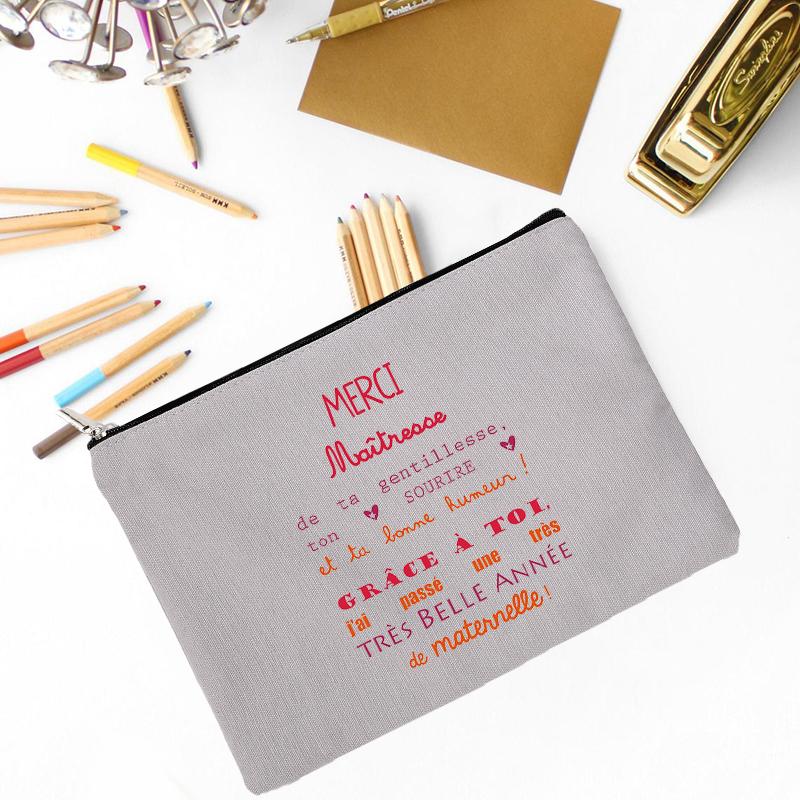 Pentel
Swingline
MERCI
Maîtresse
de ta gentillesse,
ton SOURIRE
et ta bonne humeur !
GRÂCE À TOI,
j'ai passé une très
TRÈS BELLE ANNÉE
de maternelle !